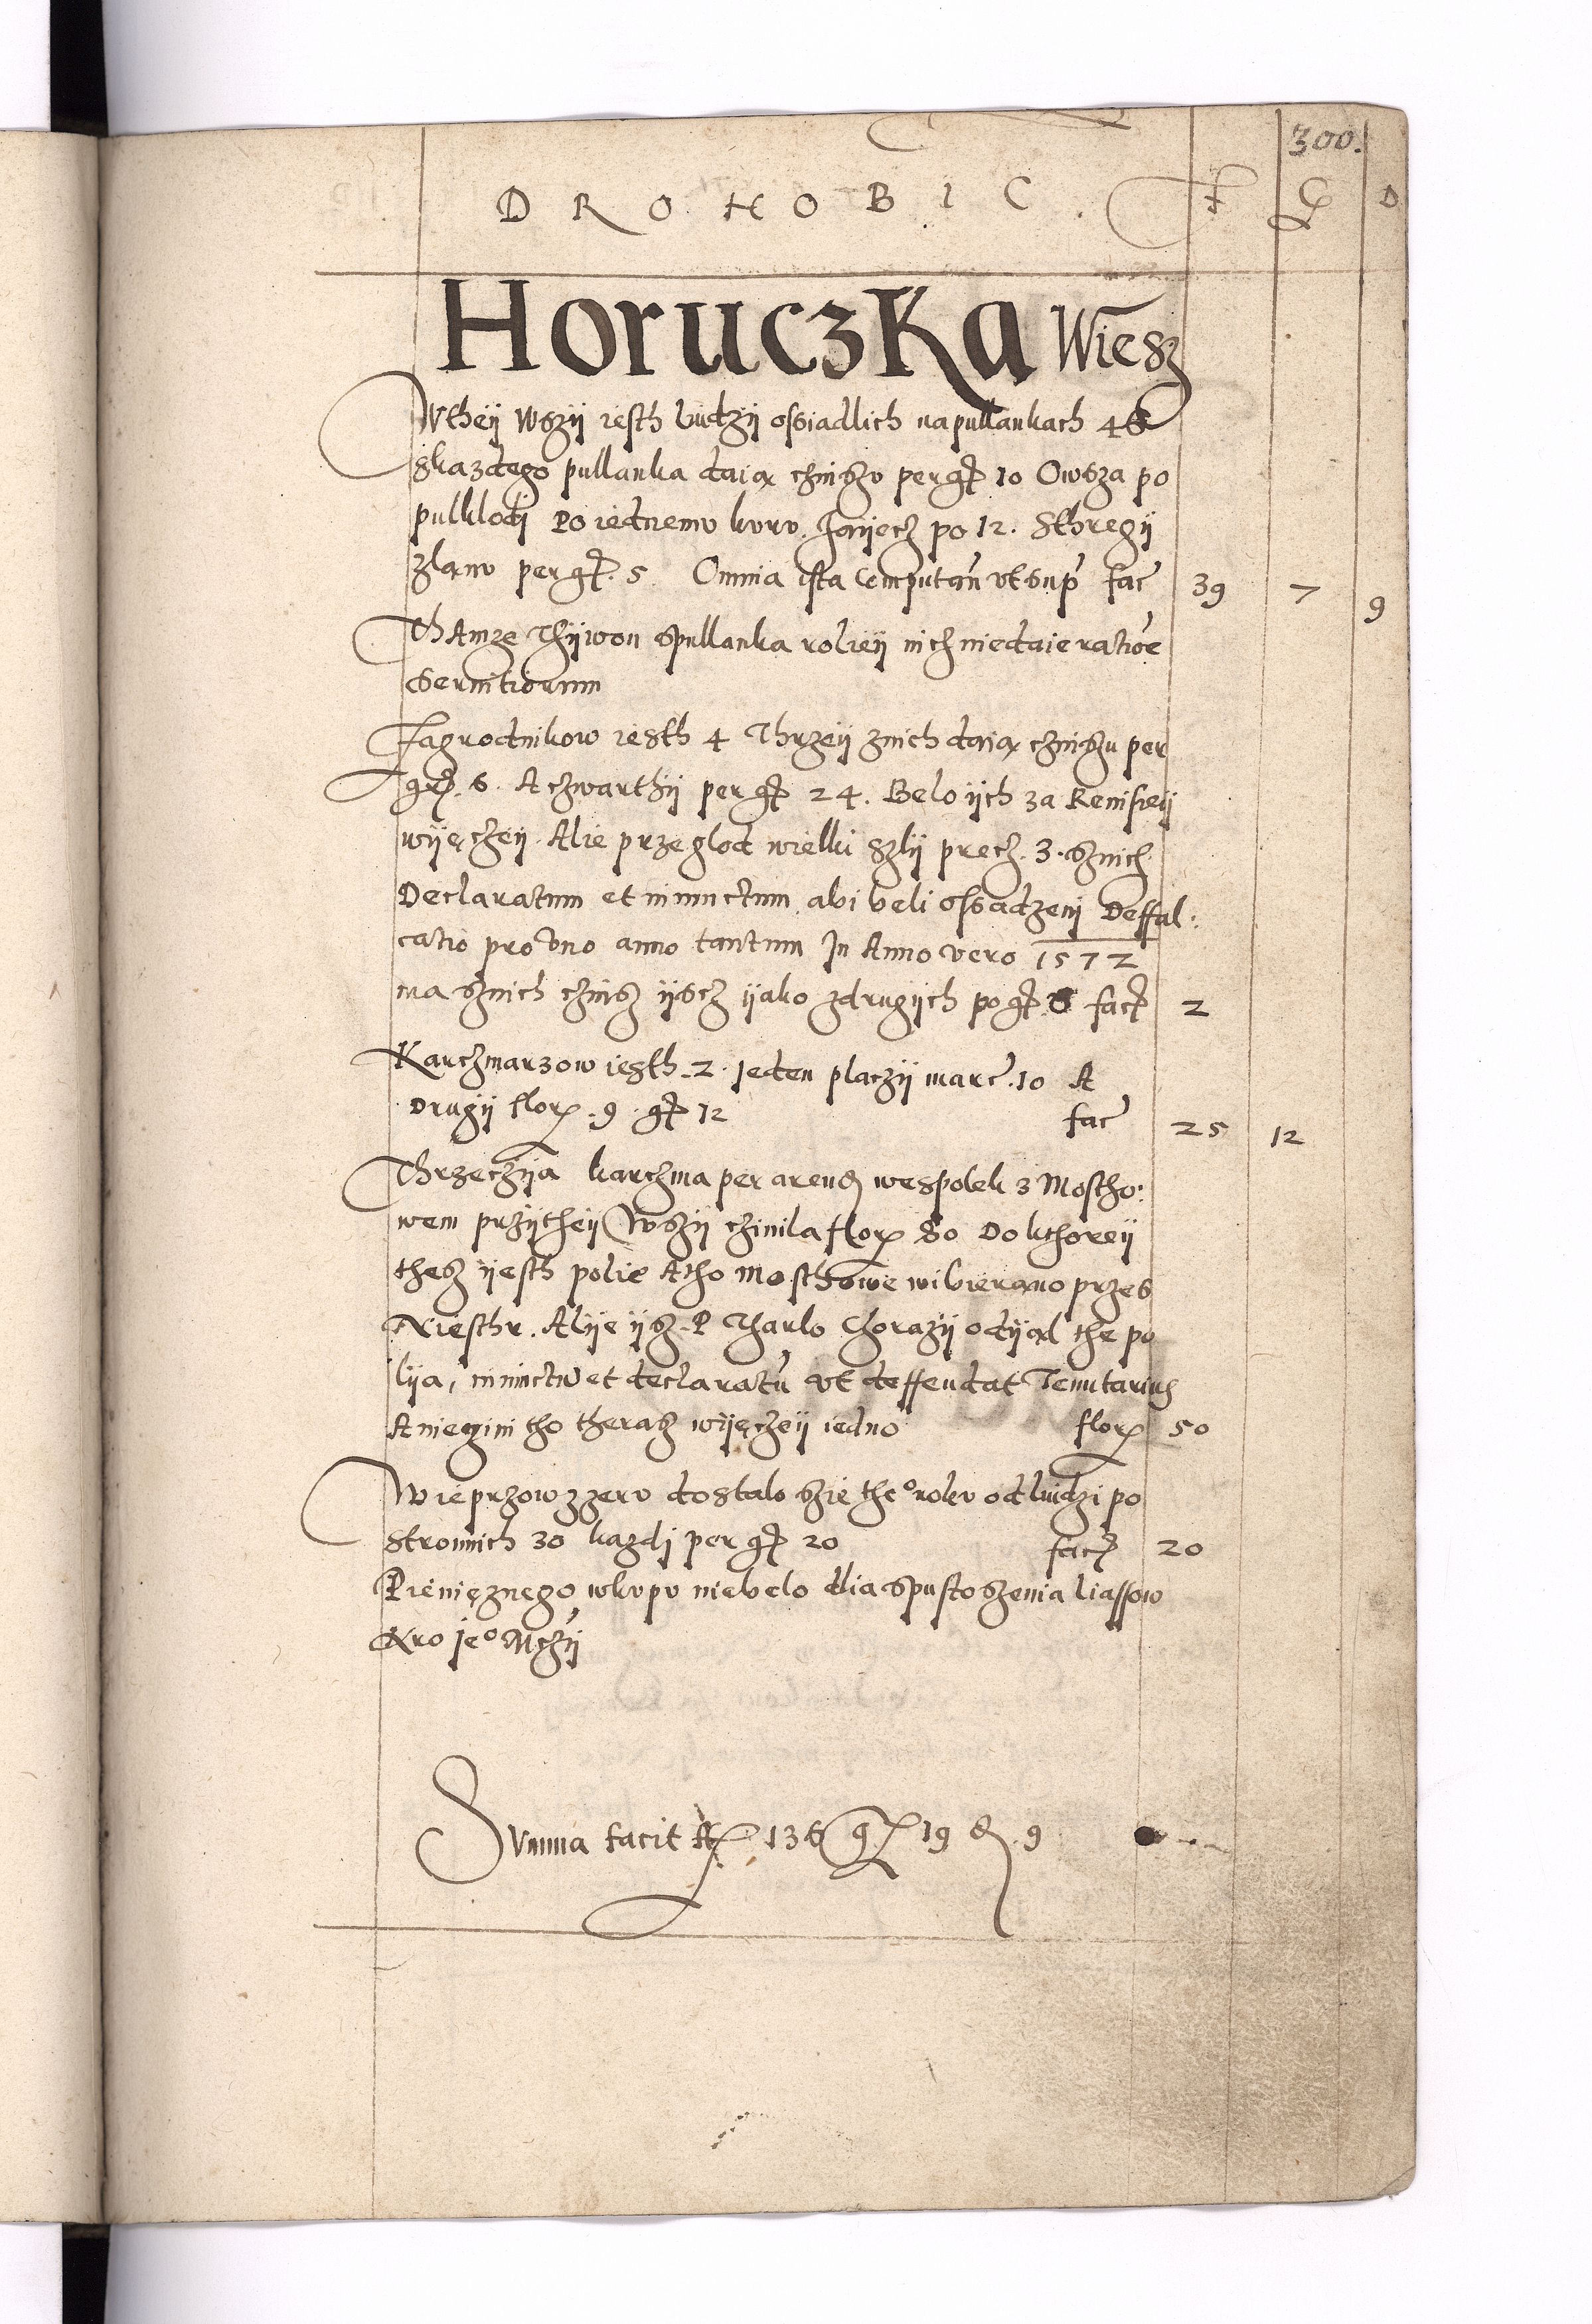 300.
DROHOBIC. F G D
HoruczKa Wiesz
Wtheÿ Wszÿ iesth ludzÿ ossiadlich napullankach 46
Skazdego pullanka daią czinszv per gr 10 Owsza po
pulklodj Po iednemv kurv. Jaÿecz po 12. Sthregÿ
zlanv per gr. 5 Omnia ista Computan vtsup fac 39 7 9
ThAmze Thÿwon spullanka rolieÿ nicz niedaie ratioe
Seruitiorum
Zagrodnikow iesth 4 Thrzeÿ znich daią czinszu per
gr. 6. A czwarthÿ per gr 24. Belo ÿch za Reuisieÿ
wÿęczeÿ. Alie przeglod wielki szlÿ precz. 3. sznich
Declaratum et iniunctum abi beli ossadzenj Deffal:
catio pro vno anno tantum In Anno vero 1572
ma sznich czinsz ÿscz ÿako zdrugÿch po gr 6 facit 2
Karczmarzow iesth 2. Jeden placzÿ marc. 10 A
Drugÿ flor. 9. gr 12 fac 25 12
Thrzeczÿa karczma per arend wespolek z Mostho:
wem przÿtheÿ Wszÿ czinila flor 80 Do kthoreÿ
thesz ÿesth polie Atho mosthowe wibierano przes
Niesthr. Alÿe ÿsz P Tharlo Chorazÿ odÿąl the po
lÿa, iniunctũ et declaratũ vt deffendat Tenutarius
A nieczini tho therasz wÿęczeÿ iedno flor 50
Wieprzow zzeru dostalo szie the° rokv od ludzi po
stronnich 30 kazdj per gr 20 facit 20
Pieniężnego wkupu niebelo dlia spustoszenia liassow
Kro Je° Mczÿ
Summa facit fl 136 gr 19 d. 9